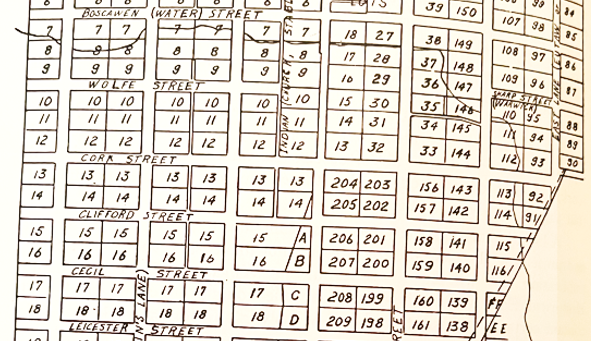 39 150 84
BOSCAWEN (WATER) STREET
107 98 85
7 7 7 7 7 7 7 18 27 38 149
8 8 8 8 8 8 8 17 28 37 148 108 97 86
9 9 9 9 9 9 9 16 29 36 147 109 96 87
WOLFE STREET
SHARP STREET
(WARWICK)
10 10 10 10 10 10 10 15 30 35 146 110 95
11 11 11 11 11 11 11 14 31 34 145 111 94 88
12 12 12 12 12 12 12 13 32 33 144 112 93 89
90
INDIAN
EAST LANE
CORK STREET
13 13 13 13 13 13 13 204 203 156 143 113 92
14 14 14 14 14 14 14 205 202 157 142 114 91
CLIFFORD STREET
15 15 15 15 15 15 A 206 201 158 141 115
16 16 16 16 16 16 B 207 200 159 140 116
CECIL STREET
17 17 17 17 17 17 C 208 199 160 139
18 18 18 18 18 18 D 209 198 161 138 EE
LEICESTER STREET
N'S LANE)
REET